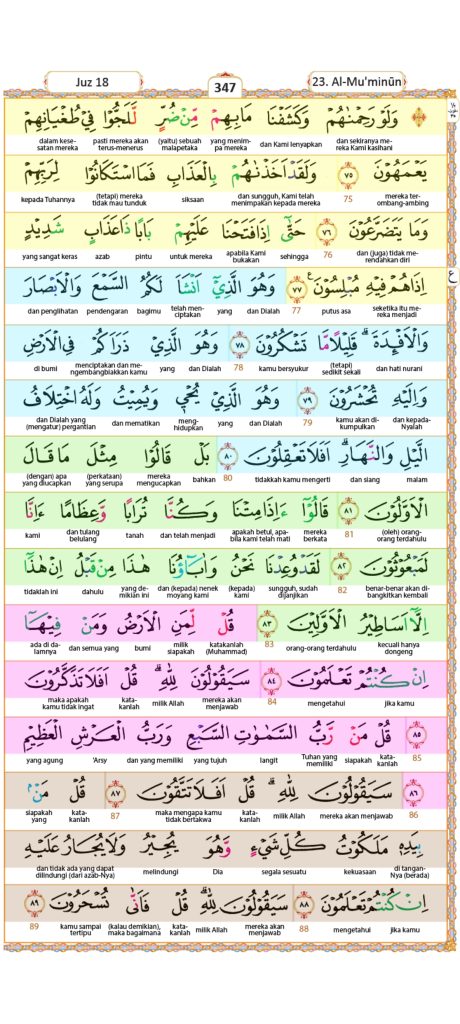 Juz 18
347
23. Al-Mu'minūn
وَلَوْ رَحِمْنٰهُمْ وَكَشَفْنَا مَا بِهِمْ مِّنْ ضُرٍّ لَّلَجُّوْا فِيْ طُغْيَانِهِمْ
dan sekiranya mereka Kami kasihani dan Kami lenyapkan yang menimpa mereka (yaitu) sebuah malapetaka pasti mereka akan terus-menerus dalam kesesatan mereka
يَعْمَهُوْنَ ٧٥ وَلَقَدْ اَخَذْنٰهُمْ بِالْعَذَابِ فَمَا اسْتَكَانُوْا لِرَبِّهِمْ
mereka terombang-ambing 75 dan sungguh, Kami telah menimpakan kepada mereka siksaan (tetapi) mereka tidak mau tunduk kepada Tuhannya
وَمَا يَتَضَرَّعُوْنَ ٧٦ حَتّٰٓى اِذَا فَتَحْنَا عَلَيْهِمْ بَابًا ذَا عَذَابٍ شَدِيْدٍ
dan (juga) tidak merendahkan diri 76 sehingga apabila Kami bukakan untuk mereka pintu azab yang sangat keras
اِذَا هُمْ فِيْهِ مُبْلِسُوْنَ ࣖ ٧٧ وَهُوَ الَّذِيْٓ اَنْشَاَ لَكُمُ السَّمْعَ وَالْاَبْصَارَ
seketika itu mereka menjadi putus asa 77 dan Dialah yang telah menciptakan bagimu pendengaran dan penglihatan
وَالْاَفْـِٕدَةَۗ قَلِيْلًا مَّا تَشْكُرُوْنَ ٧٨ وَهُوَ الَّذِيْ ذَرَاَكُمْ فِى الْاَرْضِ
dan hati nurani (tetapi) sedikit sekali kamu bersyukur 78 dan Dialah yang menciptakan dan mengembangbiakkan kamu di bumi
وَاِلَيْهِ تُحْشَرُوْنَ ٧٩ وَهُوَ الَّذِيْ يُحْيٖ وَيُمِيْتُ وَلَهُ اخْتِلَافُ
dan kepada-Nyalah kamu akan dikumpulkan 79 dan Dialah yang menghidupkan dan mematikan dan Dialah yang (mengatur) pergantian
الَّيْلِ وَالنَّهَارِۗ اَفَلَا تَعْقِلُوْنَ ٨٠ بَلْ قَالُوْا مِثْلَ مَا قَالَ
malam dan siang tidakkah kamu mengerti 80 bahkan mereka mengucapkan (perkataan) yang serupa (dengan) apa yang diucapkan
الْاَوَّلُوْنَ ٨١ قَالُوْٓا ءَاِذَا مِتْنَا وَكُنَّا تُرَابًا وَّعِظَامًا ءَاِنَّا
(oleh) orang-orang terdahulu 81 mereka berkata apakah betul, apabila kami telah mati dan telah menjadi tanah dan tulang belulang kami
لَمَبْعُوْثُوْنَ ٨٢ لَقَدْ وُعِدْنَا نَحْنُ وَاٰبَاۤؤُنَا هٰذَا مِنْ قَبْلُ اِنْ هٰذَآ
benar-benar akan dibangkitkan kembali 82 sungguh, sudah dijanjikan (kepada) kami dan (kepada) nenek moyang kami yang demikian ini dahulu tidaklah ini
اِلَّآ اَسَاطِيْرُ الْاَوَّلِيْنَ ٨٣ قُلْ لِّمَنِ الْاَرْضُ وَمَنْ فِيْهَآ
kecuali hanya dongeng orang-orang terdahulu 83 katakanlah (Muhammad) milik siapakah bumi dan semua yang ada di dalamnya
اِنْ كُنْتُمْ تَعْلَمُوْنَ ٨٤ سَيَقُوْلُوْنَ لِلّٰهِۗ قُلْ اَفَلَا تَذَكَّرُوْنَ
jika kamu mengetahui 84 mereka akan menjawab milik Allah katakanlah maka apakah kamu tidak ingat
٨٥ قُلْ مَنْ رَّبُّ السَّمٰوٰتِ السَّبْعِ وَرَبُّ الْعَرْشِ الْعَظِيْمِ
85 katakanlah siapakah Tuhan yang memiliki langit yang tujuh dan yang memiliki 'Arsy yang agung
٨٦ سَيَقُوْلُوْنَ لِلّٰهِۗ قُلْ اَفَلَا تَتَّقُوْنَ ٨٧ قُلْ مَنْۢ
86 mereka akan menjawab milik Allah katakanlah maka mengapa kamu tidak bertakwa 87 katakanlah siapakah yang
بِيَدِهٖ مَلَكُوْتُ كُلِّ شَيْءٍ وَّهُوَ يُجِيْرُ وَلَا يُجَارُ عَلَيْهِ
di tangan-Nya (berada) kekuasaan segala sesuatu Dia melindungi dan tidak ada yang dapat dilindungi (dari azab-Nya)
اِنْ كُنْتُمْ تَعْلَمُوْنَ ٨٨ سَيَقُوْلُوْنَ لِلّٰهِۗ قُلْ فَاَنّٰى تُسْحَرُوْنَ ٨٩
jika kamu mengetahui 88 mereka akan menjawab milik Allah katakanlah (kalau demikian), maka bagaimana kamu sampai tertipu 89
ع